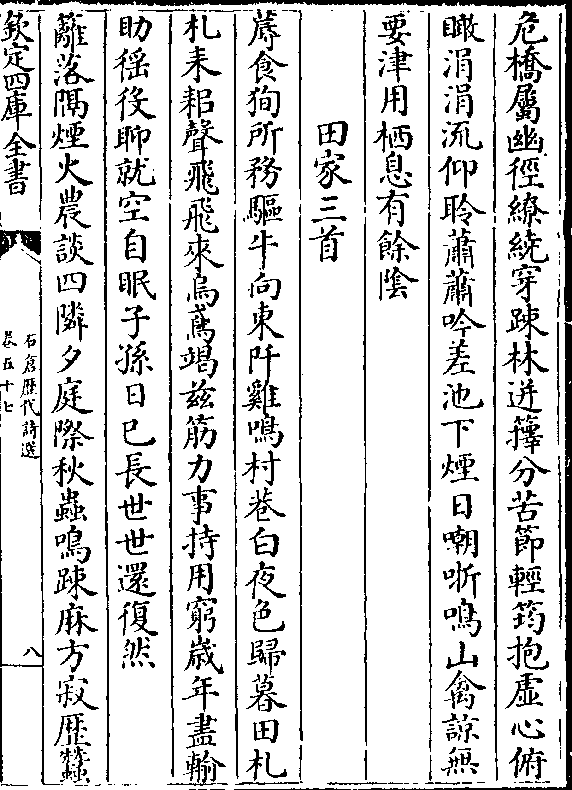 危橋屬幽徑繚繞穿踈林迸籜分苦節輕筠抱虛心俯
瞰涓涓流仰聆蕭蕭吟差池下煙日嘲哳鳴山禽諒無
要津用栖息有餘陰
田家三首
蓐食狥所務驅牛向東阡雞鳴村巷白夜色歸暮田札
札耒耜聲飛飛來烏鳶竭兹筋力事持用窮歲年盡輸
助徭役聊就空自眠子孫日已長世世還復然
籬落隔煙火農談四隣夕庭際秋蟲鳴踈麻方寂歴蠶
欽定四庫全書
石倉歴代詩選
卷五十七
八